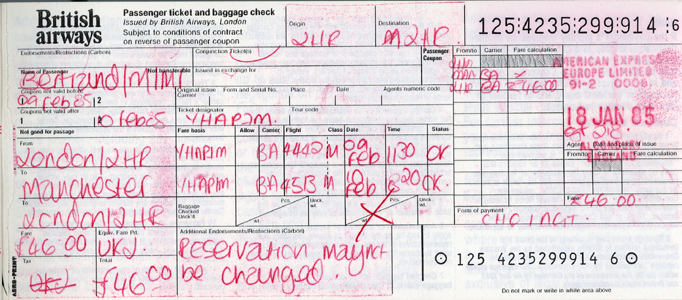 British airways
Passenger ticket and baggage check
Issued by British Airways, London
Subject to conditions of contract
on reverse of passenger coupon
Origin
LHR
Destination
MAN
125:4235:299:914 :6
Endorsements/Restrictions (Carbon)
Conjunction Ticket(s)
Passenger Coupon
From/to Carrier Fare calculation
LHR
MAN BA
LHR BA £46.00
AMERICAN EXPRESS
EUROPE LIMITED
91-2
18 JAN 85
Name of Passenger
Not transferable
Issued in exchange for
Coupons not valid before
09 Feb 85
1
2
Original issue Carrier Form and Serial No. Place Date Agents numeric code
Coupons not valid after
10 Feb 85
Ticket designator
YHAP1M
Tour code
Agent Date and place of issue
ENGLAND
Not good for passage
Fare basis Allow Carrier Flight Class Date Time Status
From/to Carrier Fare calculation
From
London LHR YHAP1M BA 4442 M 09 Feb 1130 OK
To
Manchester YHAP1M BA 4513 M 10 Feb 820 OK
To
London LHR
Baggage Checked Unck'd
Pcs. wt.
Unck. wt.
Pcs. wt.
Unck. wt.
£46.00
Form of payment
Fare
£46.00
Equiv. Fare Pd.
UKJ
Additional Endorsements/Restrictions (Carbon)
Reservation may not
be changed.
Tax
UKJ
Total
£46.00
125 4235299914 6
Do not mark or write in white area above